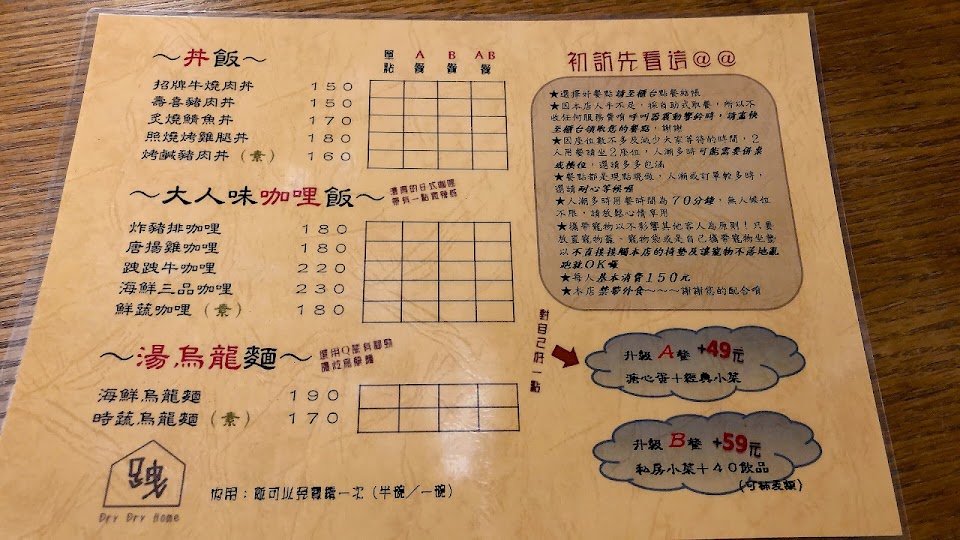 ～丼飯～
單點 A餐 B餐 AB餐
招牌牛燒肉丼 150
壽喜豬肉丼 150
炙燒鯖魚丼 170
照燒烤雞腿丼 180
烤鹹豬肉丼（素） 160
～大人味咖哩飯～
濃厚的日式咖哩
帶有一點微辣感
炸豬排咖哩 180
唐揚雞咖哩 180
跩跩牛咖哩 220
海鮮三品咖哩 230
鮮蔬咖哩（素） 180
～湯烏龍麵～
選用Q
海鮮烏龍麵 190
時蔬烏龍麵（素） 170
Dry Dry Home
可以免費續一次（半碗／一碗）
初訪先看這@@
★選擇好餐點請至櫃台點餐結帳
★因本店人手不足，採自助式取餐，所以不
收任何服務費唷 呼叫器震動響鈴時，請盡快
至櫃台領取您的餐點，謝謝
★因座位數不多及減少大家等待的時間，2
人用餐請坐2座位，人潮多時可能需要併桌
或換位，還請多多包涵
★餐點都是現點現做，人潮或訂單較多時，
還請耐心等候唷
★人潮多時用餐時間為70分鐘，無人候位
不限，請放鬆心情享用
★攜帶寵物以不影響其他客人為原則！只要
放置寵物籃、寵物袋或是自己攜帶寵物坐墊
以不直接接觸本店的椅墊及讓寵物不落地亂
跑就OK囉
★每人基本消費150元
★本店禁帶外食～～～～謝謝您的配合唷
對自己好一點
升級A餐 +49元
溏心蛋＋經典小菜
升級B餐 +59元
私房小菜＋40飲品